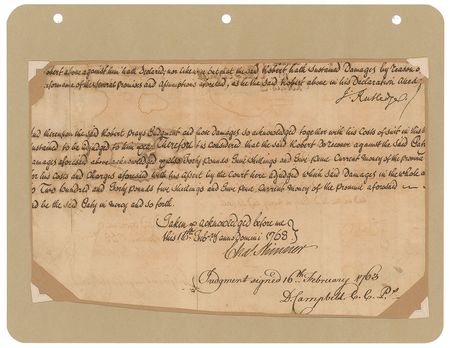 obert above against him hath Declared; nor likewise but that the said Robert hath Sustained Damages by Reason
formance of his Several Promises and Assumptions aforesaid, as he the said Robert above in his Declaration
J Rutledge
And thereupon the said Robert prays Judgment and those Damages so acknowledged together with his Costs of suit in this
sustained to be adjudged to him &c. Therefore it is Considered that the said Robert do recover against the said
Damages aforesaid above acknowledged Forty Pounds five Shillings and five pence Current money of the province
for his Costs and Charges aforesaid with his assent by the Court here adjudged which said Damages in the whole
to Two Hundred and Forty Pounds five Shillings and five pence Current money of the province aforesaid
and be the said in mercy and so forth.
Taken & acknowledged before me
this 16th Feb.ry anno Domini 1763
Chas Skinner
Judgment signed 16th February 1763
D. Campbell C. C. Ps